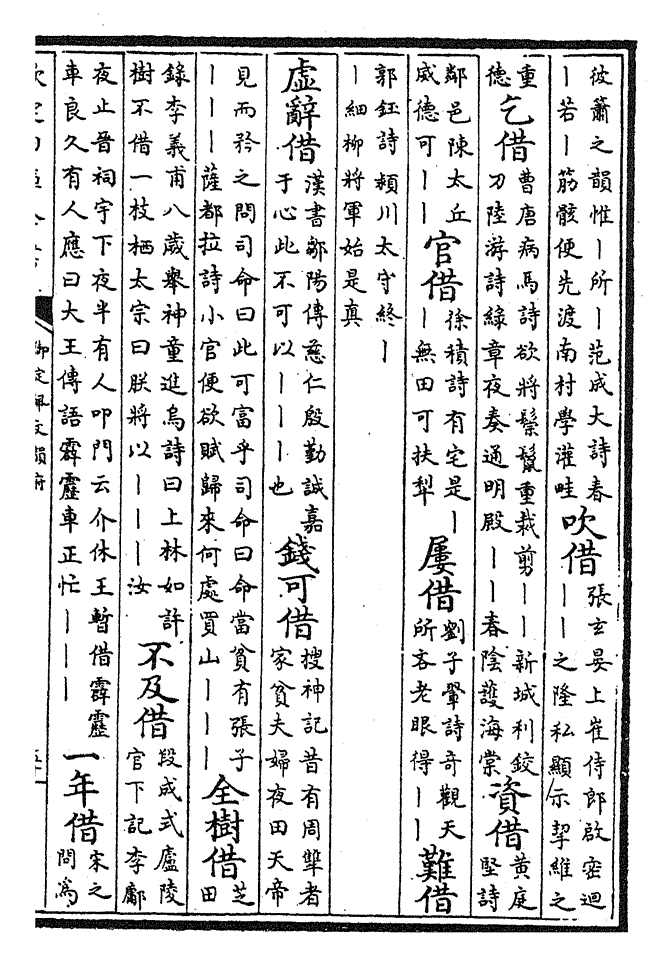 彼蕭之韻惟丨所丨范成大詩春
丨若丨筋骸便先渡南村學灌畦
吹借
張玄晏上崔侍郎啟密迴
丨丨之隆私顯示挈維之
重
德
乞借
曹唐病馬詩欲將鬃鬣重裁剪丨丨新城利鉸
刀陸游詩綠章夜奏通明殿丨丨春陰護海棠
資借
黃庭
堅詩
鄰邑陳太丘
威德可丨丨
官借
徐積詩有宅是丨
丨無田可扶犁
屢借
劉子翬詩奇觀天
所吝老眼得丨丨
難借
郭鈺詩頴川太守終丨
丨細柳將軍始是真
虛辭借
漢書鄒陽傳慈仁殷勤誠嘉
于心此不可以丨丨丨也
錢可借
搜神記昔有周犨者
家貧夫婦夜田天帝
見而矜之問司命曰此可富乎司命曰命當貧有張子
丨丨丨薩都拉詩小官便欲賦歸來何處買山丨丨丨
全樹借
芝
田
錄李義甫八歲舉神童進烏詩曰上林如許
樹不借一枝栖太宗曰朕將以丨丨丨汝
不及借
段成式廬陵
官下記李鄘
夜止晉祠宇下夜半有人叩門云介休王暫借霹靂
車良久有人應曰大王傳語霹靂車正忙丨丨丨
一年借
宋之
問為
御定佩文韻府